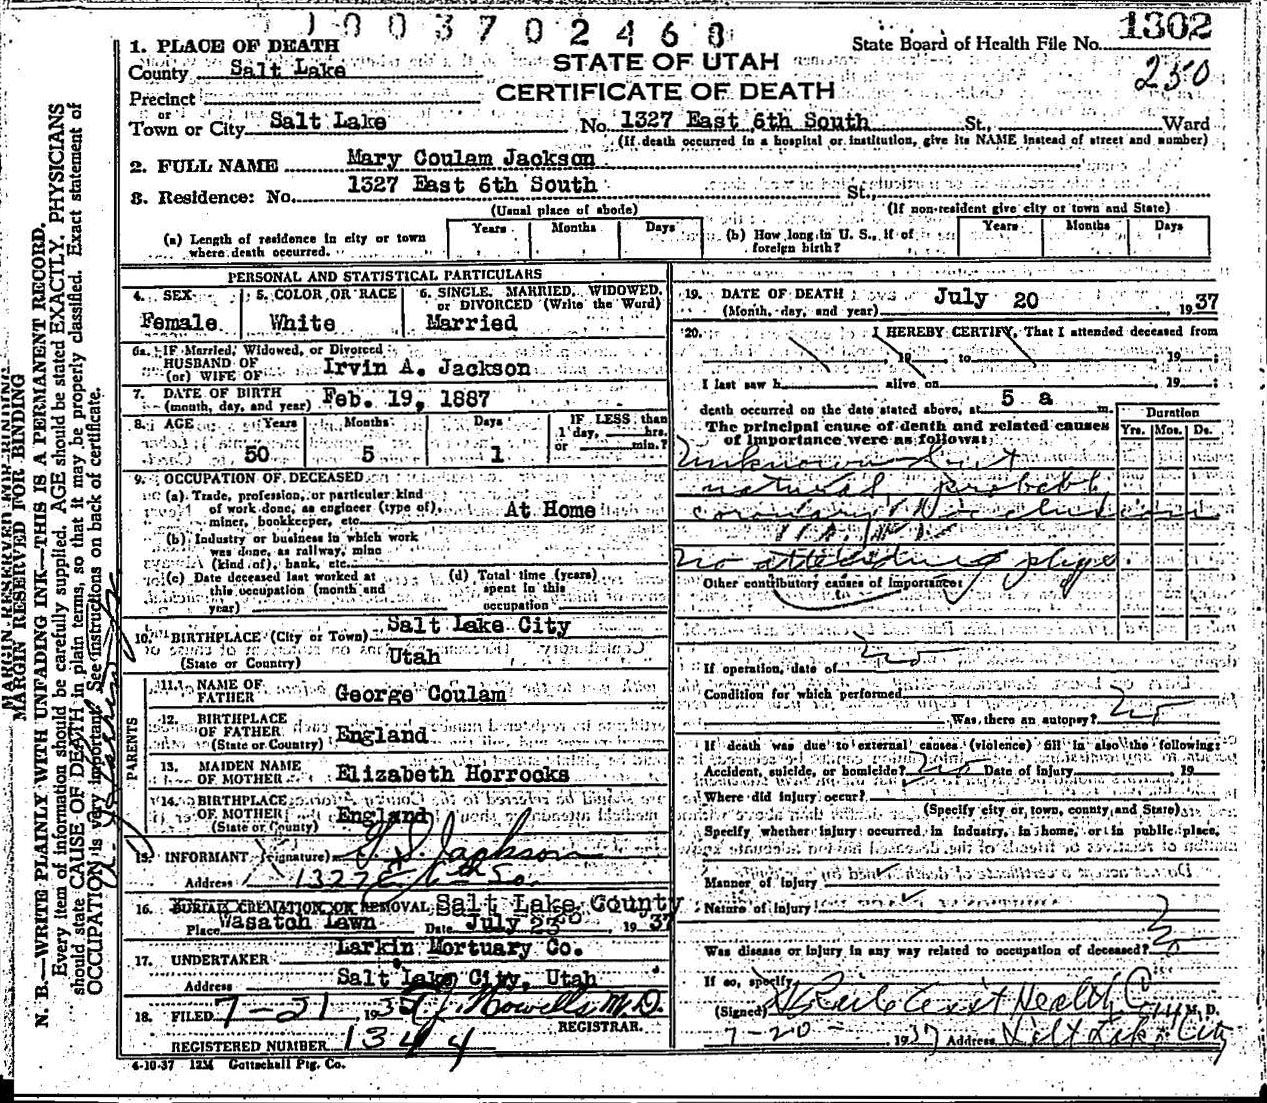 1003702468
1302
State Board of Health File No.
250
STATE OF UTAH
CERTIFICATE OF DEATH
1. PLACE OF DEATH
County Salt Lake
Precinct
or
Town or City Salt Lake No. 1327 East 6th South St., Ward
(If death occurred in a hospital or institution, give its NAME instead of street and number)
2. FULL NAME Mary Coulam Jackson
3. Residence: No. 1327 East 6th South St.,
(Usual place of abode) (If non-resident give city or town and State)
(a) Length of residence in city or town where death occurred. Years Months Days (b) How long in U. S., if of foreign birth? Years Months Days
PERSONAL AND STATISTICAL PARTICULARS
4. SEX Female
5. COLOR OR RACE White
6. SINGLE, MARRIED, WIDOWED, or DIVORCED (Write the Word) Married
6a. IF Married, Widowed, or Divorced
HUSBAND OF
(or) WIFE OF Irvin A. Jackson
7. DATE OF BIRTH
(month, day, and year) Feb. 19, 1887
8. AGE Years Months Days IF LESS than
1 day, hrs.
or min.?
50 5 1
9. OCCUPATION OF DECEASED
(a) Trade, profession, or particular kind
of work done, as engineer (type of),
miner, bookkeeper, etc. At Home
(b) Industry or business in which work
was done, as railway, mine
(kind of), bank, etc.
(c) Date deceased last worked at
this occupation (month and
year)
(d) Total time (years)
spent in this
occupation
10. BIRTHPLACE (City or Town) Salt Lake City
(State or Country) Utah
PARENTS
11. NAME OF
FATHER George Coulam
12. BIRTHPLACE
OF FATHER
(State or Country) England
13. MAIDEN NAME
OF MOTHER Elizabeth Horrocks
14. BIRTHPLACE
OF MOTHER
(State or County) England
15. INFORMANT (signature) Jackson
Address 1327 E 6th So.
16. BURIAL CREMATION OR REMOVAL Salt Lake County
Place Wasatch Lawn Date July 23rd, 1937
17. UNDERTAKER Larkin Mortuary Co.
Address Salt Lake City, Utah
18. FILED 7-21 1937 Howells M.D.
REGISTRAR.
REGISTERED NUMBER 1344
4-10-37 12M Gottschall Ptg. Co.
19. DATE OF DEATH
(Month, day, and year) July 20 1937
20. I HEREBY CERTIFY, That I attended deceased from
, 19 to , 19 ;
I last saw h alive on , 19 ;
death occurred on the date stated above, at 5 a m.
The principal cause of death and related causes
of importance were as follows:
Duration
Yrs. Mos. Ds.
Unknown but
natural, probably
coronary
No attending phys.
Other contributory causes of importance:
If operation, date of no
Condition for which performed
Was there an autopsy? no
If death was due to external causes (violence) fill in also the following:
Accident, suicide, or homicide? no Date of injury , 19
Where did injury occur?
(Specify city or town, county, and State)
Specify whether injury occurred in industry, in home, or in public place,
Manner of injury
Nature of injury
Was disease or injury in any way related to occupation of deceased? no
If so, specify
(Signed) Health M. D.
7-20- 1937 Address Salt Lake City
MARGIN RESERVED FOR BINDING
N. B.—WRITE PLAINLY WITH UNFADING INK—THIS IS A PERMANENT RECORD.
Every item of information should be carefully supplied. AGE should be stated EXACTLY. PHYSICIANS
should state CAUSE OF DEATH in plain terms, so that it may be properly classified. Exact statement of
OCCUPATION is very important. See instructions on back of certificate.